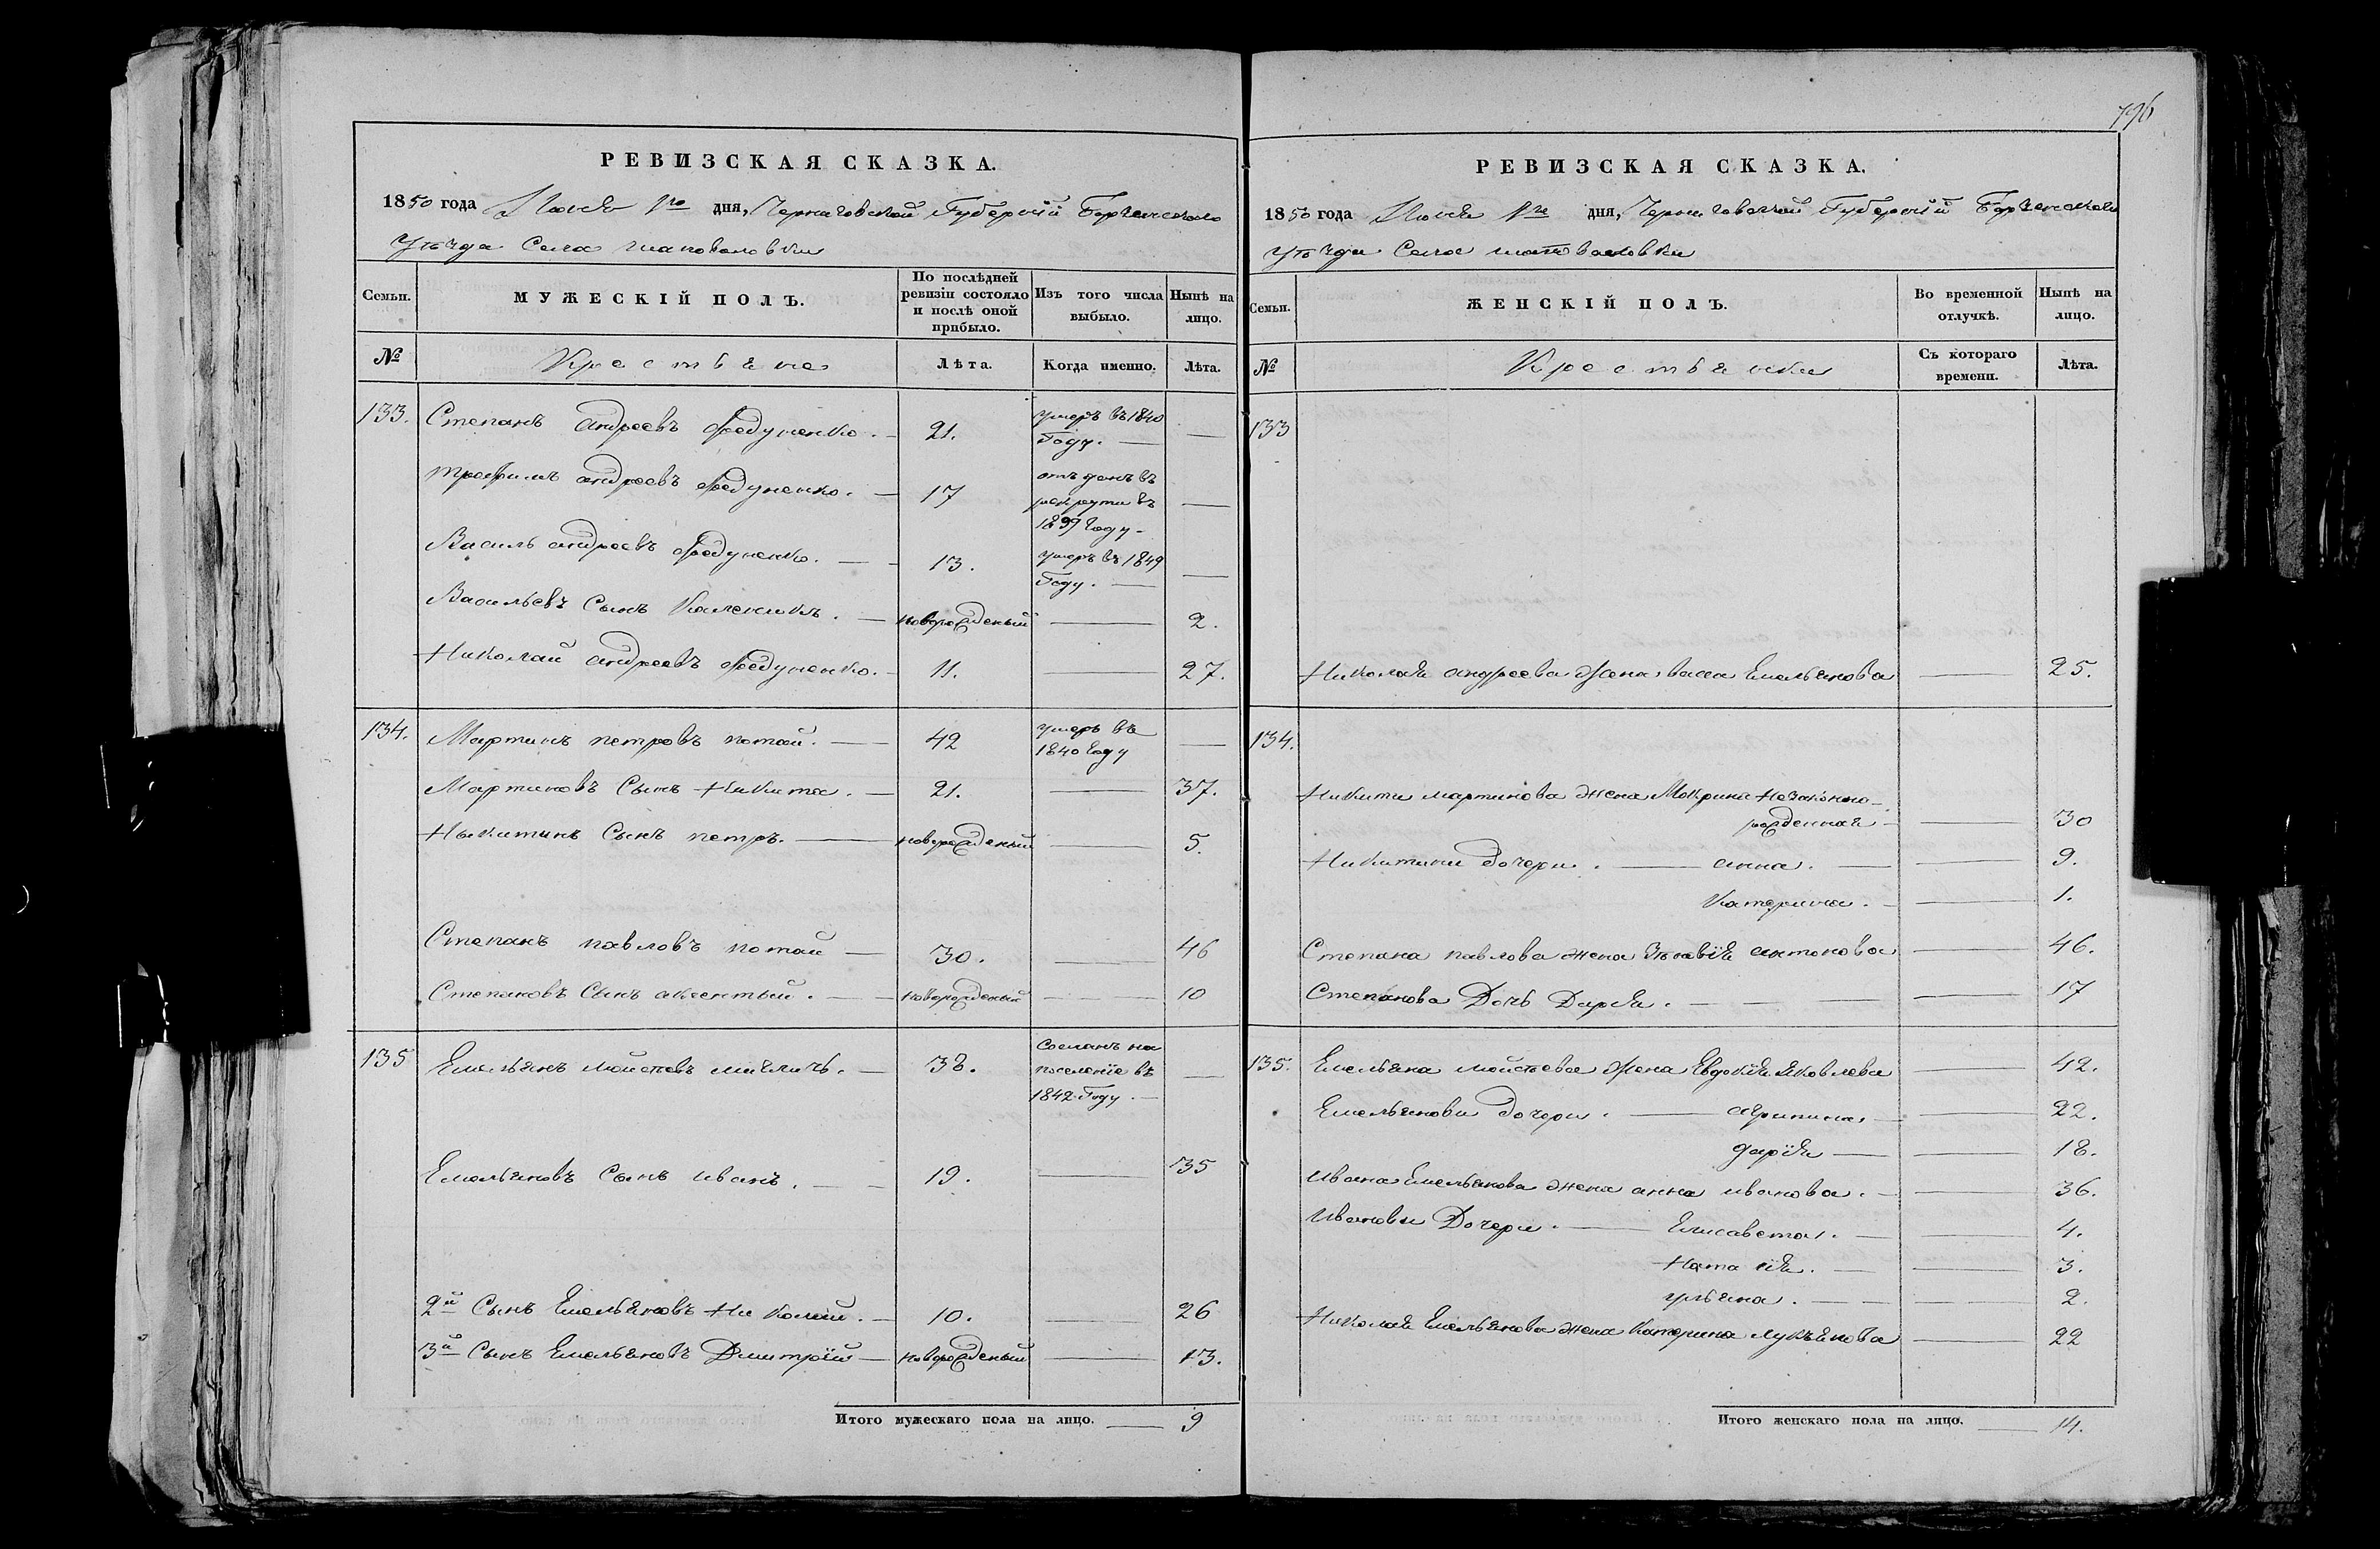 796
РЕВИЗСКАЯ СКАЗКА.
1850 года Июня 1го дня, Черниговской Губерній Борзенского
Уѣзда Села шаповаловки
Семьи. МУЖЕСКІЙ ПОЛЪ. По послѣдней ревизіи состояло и послѣ оной прибыло. Изъ того числа выбыло. Нынѣ на лицо.
№ Крестьяне Лѣта. Когда именно. Лѣта.
133. Степанъ андреевъ Федуненко. — 21. умеръ въ 1840 Году. — —
трофимъ андреевъ Федуненко. — 17 отъданъ въ рекрути въ 1839 Году — —
Василь андреевъ Федуненко. — 13. умеръ въ 1849 Году. — —
Васильевъ Сынъ Каленикъ. — новорожденый — 2.
Николай андреевъ Федуненко. — 11. — 27.
134. Мартинъ петровъ потай. — 42 умеръ въ 1840 Году —
Мартиновъ Сынъ Никита. — 21. — 37.
Никитинъ Сынъ петръ. — новорожденый — 5.
Степанъ павловъ потай — 30. — 46
Степановъ Сынъ авксентый. — новорожденый — 10
135 Емельянъ мойсѣевъ — 38. Сосланъ на поселеніе въ 1842 Году. — —
Емельяновъ Сынъ иванъ. — 19. — 35
2й Сынъ Емельяновъ Николай. — 10. — 26
3й Сынъ Емельяновъ Дмитрій — новорожденый — 13.
Итого мужескаго пола на лицо. — 9
РЕВИЗСКАЯ СКАЗКА.
1850 года Июня 1го дня, Черниговской Губерній Борзенского
уѣзда Села шаповаловки
Семьи. ЖЕНСКІЙ ПОЛЪ. Во временной отлучкѣ. Нынѣ на лицо.
№ Крестьянки Съ котораго времени. Лѣта.
133
Николая андреева Жена васса Емельянова — 25.
134.
Никити мартинова жена Мокрина Незаконно-
рожденная — 30
Никитини дочери. — анна. — 9.
Катерина. — 1.
Степана павлова жена Зѣновія антонова — 46.
Степанова Дочь Дарія. — 17
135. Емельяна мойсѣева Жена Евдокія Яковлева — 42.
Емельянови дочери. — агрипина, — 22.
дарія — 18.
ивана Емельянова жена анна иванова. — 36.
ивановы Дочери. — Елисавета. — 4.
Наталія. — 3.
ульяна. — 2.
Николая Емельянова жена Катерина лукъянова — 22
Итого женскаго пола на лицо. — 14.